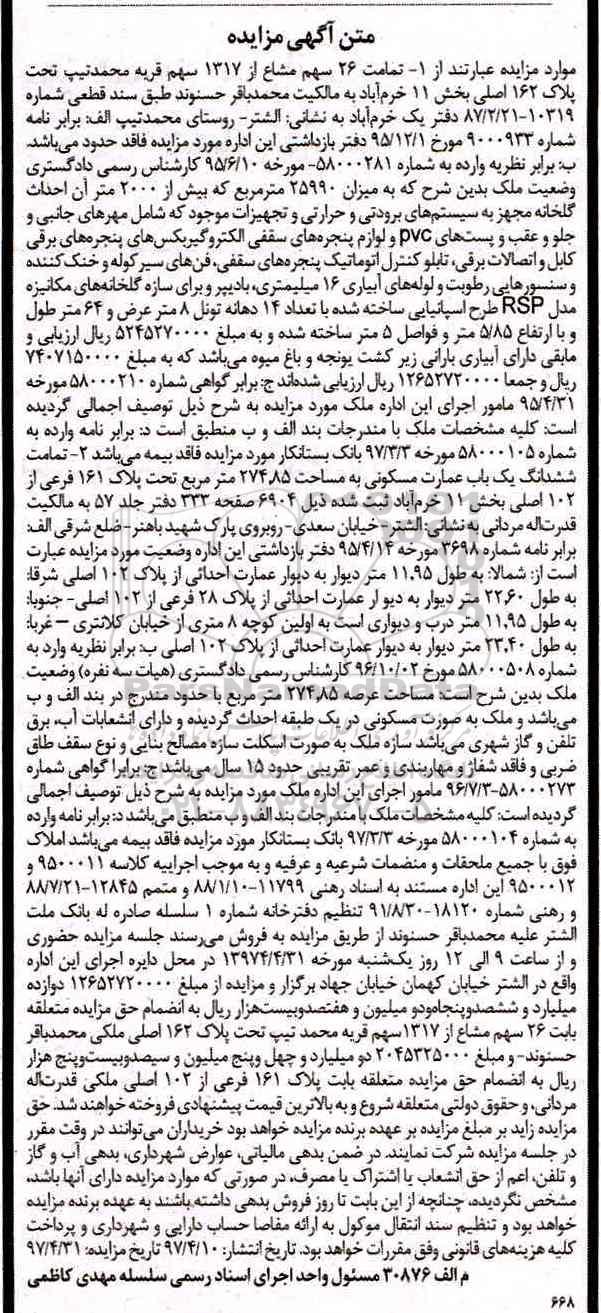 متن آگهی مزایده
موارد مزایده عبارتند از ۱- تمامت ۲۶ سهم مشاع از ۱۳۱۷ سهم قریه محمدتیپ تحت
پلاک ۱۶۲ اصلی بخش ۱۱ خرم‌آباد به مالکیت محمدباقر حسنوند طبق سند قطعی شماره
۱۰۳۱۹-۸۷/۲/۲۱ دفتر یک خرم‌آباد به نشانی: الشتر- روستای محمدتیپ الف: برابر نامه
شماره ۹۰۰۰۹۳۳ مورخ ۹۵/۱۲/۱ دفتر بازداشتی این اداره مورد مزایده فاقد حدود می‌باشد.
ب: برابر نظریه وارده به شماره ۵۸۰۰۰۲۸۱- مورخه ۹۵/۶/۱۰ کارشناس رسمی دادگستری
وضعیت ملک بدین شرح که به میزان ۲۵۹۹۰ مترمربع که بیش از ۲۰۰۰ متر آن احداث
گلخانه مجهز به سیستم‌های برودتی و حرارتی و تجهیزات موجود که شامل مهرهای جانبی و
جلو و عقب و پست‌های pvc و لوازم پنجره‌های سقفی الکتروگیربکس‌های پنجره‌های برقی
کابل و اتصالات برقی، تابلو کنترل اتوماتیک پنجره‌های سقفی، فن‌های سیرکوله و خنک‌کننده
و سنسورهایی رطوبت و لوله‌های آبیاری ۱۶ میلیمتری، بادیپر و برای سازه گلخانه‌های مکانیزه
مدل RSP طرح اسپانیایی ساخته شده با تعداد ۱۴ دهانه تونل ۸ متر عرض و ۶۴ متر طول
و با ارتفاع ۵/۸۵ متر و فواصل ۵ متر ساخته شده و به مبلغ ۵۲۴۵۲۷۰۰۰۰ ریال ارزیابی و
مابقی دارای آبیاری بارانی زیر کشت یونجه و باغ میوه می‌باشد که به مبلغ ۷۴۰۷۱۵۰۰۰۰
ریال و جمعا ۱۲۶۵۲۷۲۰۰۰۰ ریال ارزیابی شده‌اند ج: برابر گواهی شماره ۵۸۰۰۰۲۱۰ مورخه
۹۵/۴/۳۱ مامور اجرای این اداره ملک مورد مزایده به شرح ذیل توصیف اجمالی گردیده
است: کلیه مشخصات ملک با مندرجات بند الف و ب منطبق است د: برابر نامه وارده به
شماره ۵۸۰۰۰۱۰۵ مورخه ۹۷/۳/۳ بانک بستانکار مورد مزایده فاقد بیمه می‌باشد ۲- تمامت
ششدانگ یک باب عمارت مسکونی به مساحت ۲۷۴,۸۵ متر مربع تحت پلاک ۱۶۱ فرعی از
۱۰۲ اصلی بخش ۱۱ خرم‌آباد ثبت شده ذیل ۶۹۰۴ صفحه ۳۳۳ دفتر جلد ۵۷ به مالکیت
قدرت‌اله مردانی به نشانی: الشتر- خیابان سعدی- روبروی پارک شهید باهنر- ضلع شرقی الف:
برابر نامه شماره ۳۶۹۸ مورخه ۹۵/۴/۱۴ دفتر بازداشتی این اداره وضعیت مورد مزایده عبارت
است از: شمالا: به طول ۱۱,۹۵ متر دیوار به دیوار عمارت احداثی از پلاک ۱۰۲ اصلی شرقا:
به طول ۲۲,۶۰ متر دیوار به دیوار عمارت احداثی از پلاک ۲۸ فرعی از ۱۰۲ اصلی- جنوبا:
به طول ۱۱,۹۵ متر درب و دیواری است به اولین کوچه ۸ متری از خیابان کلانتری – غربا:
به طول ۲۳,۴۰ متر دیوار به دیوار عمارت احداثی از پلاک ۱۰۲ اصلی ب: برابر نظریه وارد به
شماره ۵۸۰۰۰۵۰۸ مورخ ۹۶/۱۰/۰۲ کارشناس رسمی دادگستری (هیات سه نفره) وضعیت
ملک بدین شرح است: مساحت عرصه ۲۷۴,۸۵ متر مربع با حدود مندرج در بند الف و ب
می‌باشد و ملک به صورت مسکونی در یک طبقه احداث گردیده و دارای انشعابات آب، برق
تلفن و گاز شهری می‌باشد سازه ملک به صورت اسکلت سازه مصالح بنایی و نوع سقف طاق
ضربی و فاقد شفاژ و مهاربندی و عمر تقریبی حدود ۱۵ سال می‌باشد ج: برابرا گواهی شماره
۵۸۰۰۰۲۷۳-۹۶/۷/۳ مامور اجرای این اداره ملک مورد مزایده به شرح ذیل توصیف اجمالی
گردیده است: کلیه مشخصات ملک با مندرجات بند الف و ب منطبق می‌باشد د: برابر نامه وارده
به شماره ۵۸۰۰۰۱۰۴ مورخه ۹۷/۳/۳ بانک بستانکار مورد مزایده فاقد بیمه می‌باشد املاک
فوق با جمیع ملحقات و منضمات شرعیه و عرفیه و به موجب اجراییه کلاسه ۹۵۰۰۰۱۱ و
۹۵۰۰۰۱۲ این اداره مستند به اسناد رهنی ۱۱۷۹۹-۸۸/۱/۱۰ و متمم ۱۲۸۴۵-۸۸/۷/۲۱
و رهنی شماره ۱۸۱۲۰-۹۱/۸/۳۰ تنظیم دفترخانه شماره ۱ سلسله صادره له بانک ملت
الشتر علیه محمدباقر حسنوند از طریق مزایده به فروش می‌رسند جلسه مزایده حضوری
و از ساعت ۹ الی ۱۲ روز یک‌شنبه مورخه ۱۳۹۷۴/۴/۳۱ در محل دایره اجرای این اداره
واقع در الشتر خیابان کهمان خیابان جهاد برگزار و مزایده از مبلغ ۱۲۶۵۲۷۲۰۰۰۰ دوازده
میلیارد و ششصدوپنجاه‌ودو میلیون و هفتصدوبیست‌هزار ریال به انضمام حق مزایده متعلقه
بابت ۲۶ سهم مشاع از ۱۳۱۷سهم قریه محمد تیپ تحت پلاک ۱۶۲ اصلی ملکی محمدباقر
حسنوند- و مبلغ ۲۰۴۵۳۲۵۰۰۰ دو میلیارد و چهل وپنج میلیون و سیصدوبیست‌وپنج هزار
ریال به انضمام حق مزایده متعلقه بابت پلاک ۱۶۱ فرعی از ۱۰۲ اصلی ملکی قدرت‌اله
مردانی، و حقوق دولتی متعلقه شروع و به بالاترین قیمت پیشنهادی فروخته خواهند شد. حق
مزایده زاید بر مبلغ مزایده بر عهده برنده مزایده خواهد بود خریداران می‌توانند در وقت مقرر
در جلسه مزایده شرکت نمایند. در ضمن بدهی مالیاتی، عوارض شهرداری، بدهی آب و گاز
و تلفن، اعم از حق انشعاب یا اشتراک یا مصرف، در صورتی که موارد مزایده دارای آنها باشد،
مشخص نگردیده، چنانچه از این بابت تا روز فروش بدهی داشته باشند به عهده برنده مزایده
خواهد بود و تنظیم سند انتقال موکول به ارائه مفاصا حساب دارایی و شهرداری و پرداخت
کلیه هزینه‌های قانونی وفق مقررات خواهد بود. تاریخ انتشار: ۹۷/۴/۱۰ تاریخ مزایده: ۹۷/۴/۳۱
م الف ۳۰۸۷۶ مسئول واحد اجرای اسناد رسمی سلسله مهدی کاظمی
۶۶۸
ParsNamadData